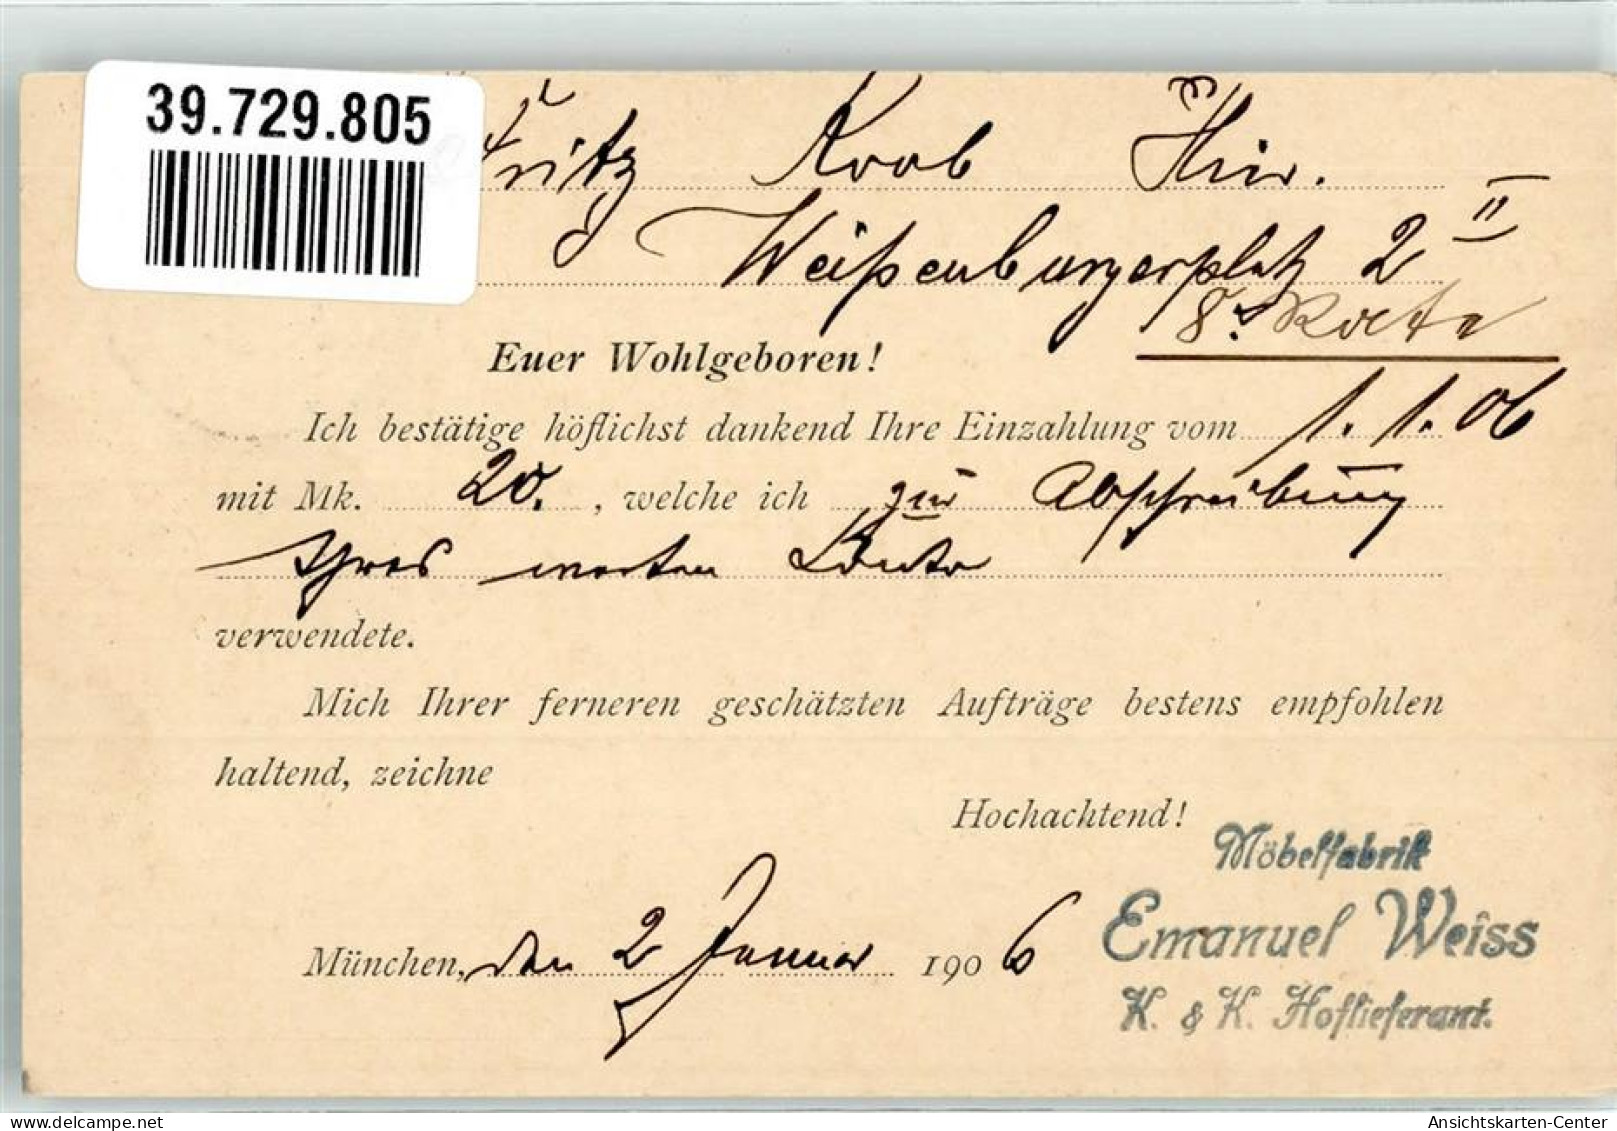 39.729.805
Fritz Koob Hier.
Weißenburgerplatz 2 II
8. Rate
Euer Wohlgeboren!
Ich bestätige höflichst dankend Ihre Einzahlung vom 1. 1. 06
mit Mk. 20. , welche ich zur Abschreibung
Ihres werten Conto
verwendete.
Mich Ihrer ferneren geschätzten Aufträge bestens empfohlen
haltend, zeichne
Hochachtend!
Möbelfabrik
Emanuel Weiss
K. & K. Hoflieferant.
München, den 2 Januar 1906
delcampe.net
Ansichtskarten-Center